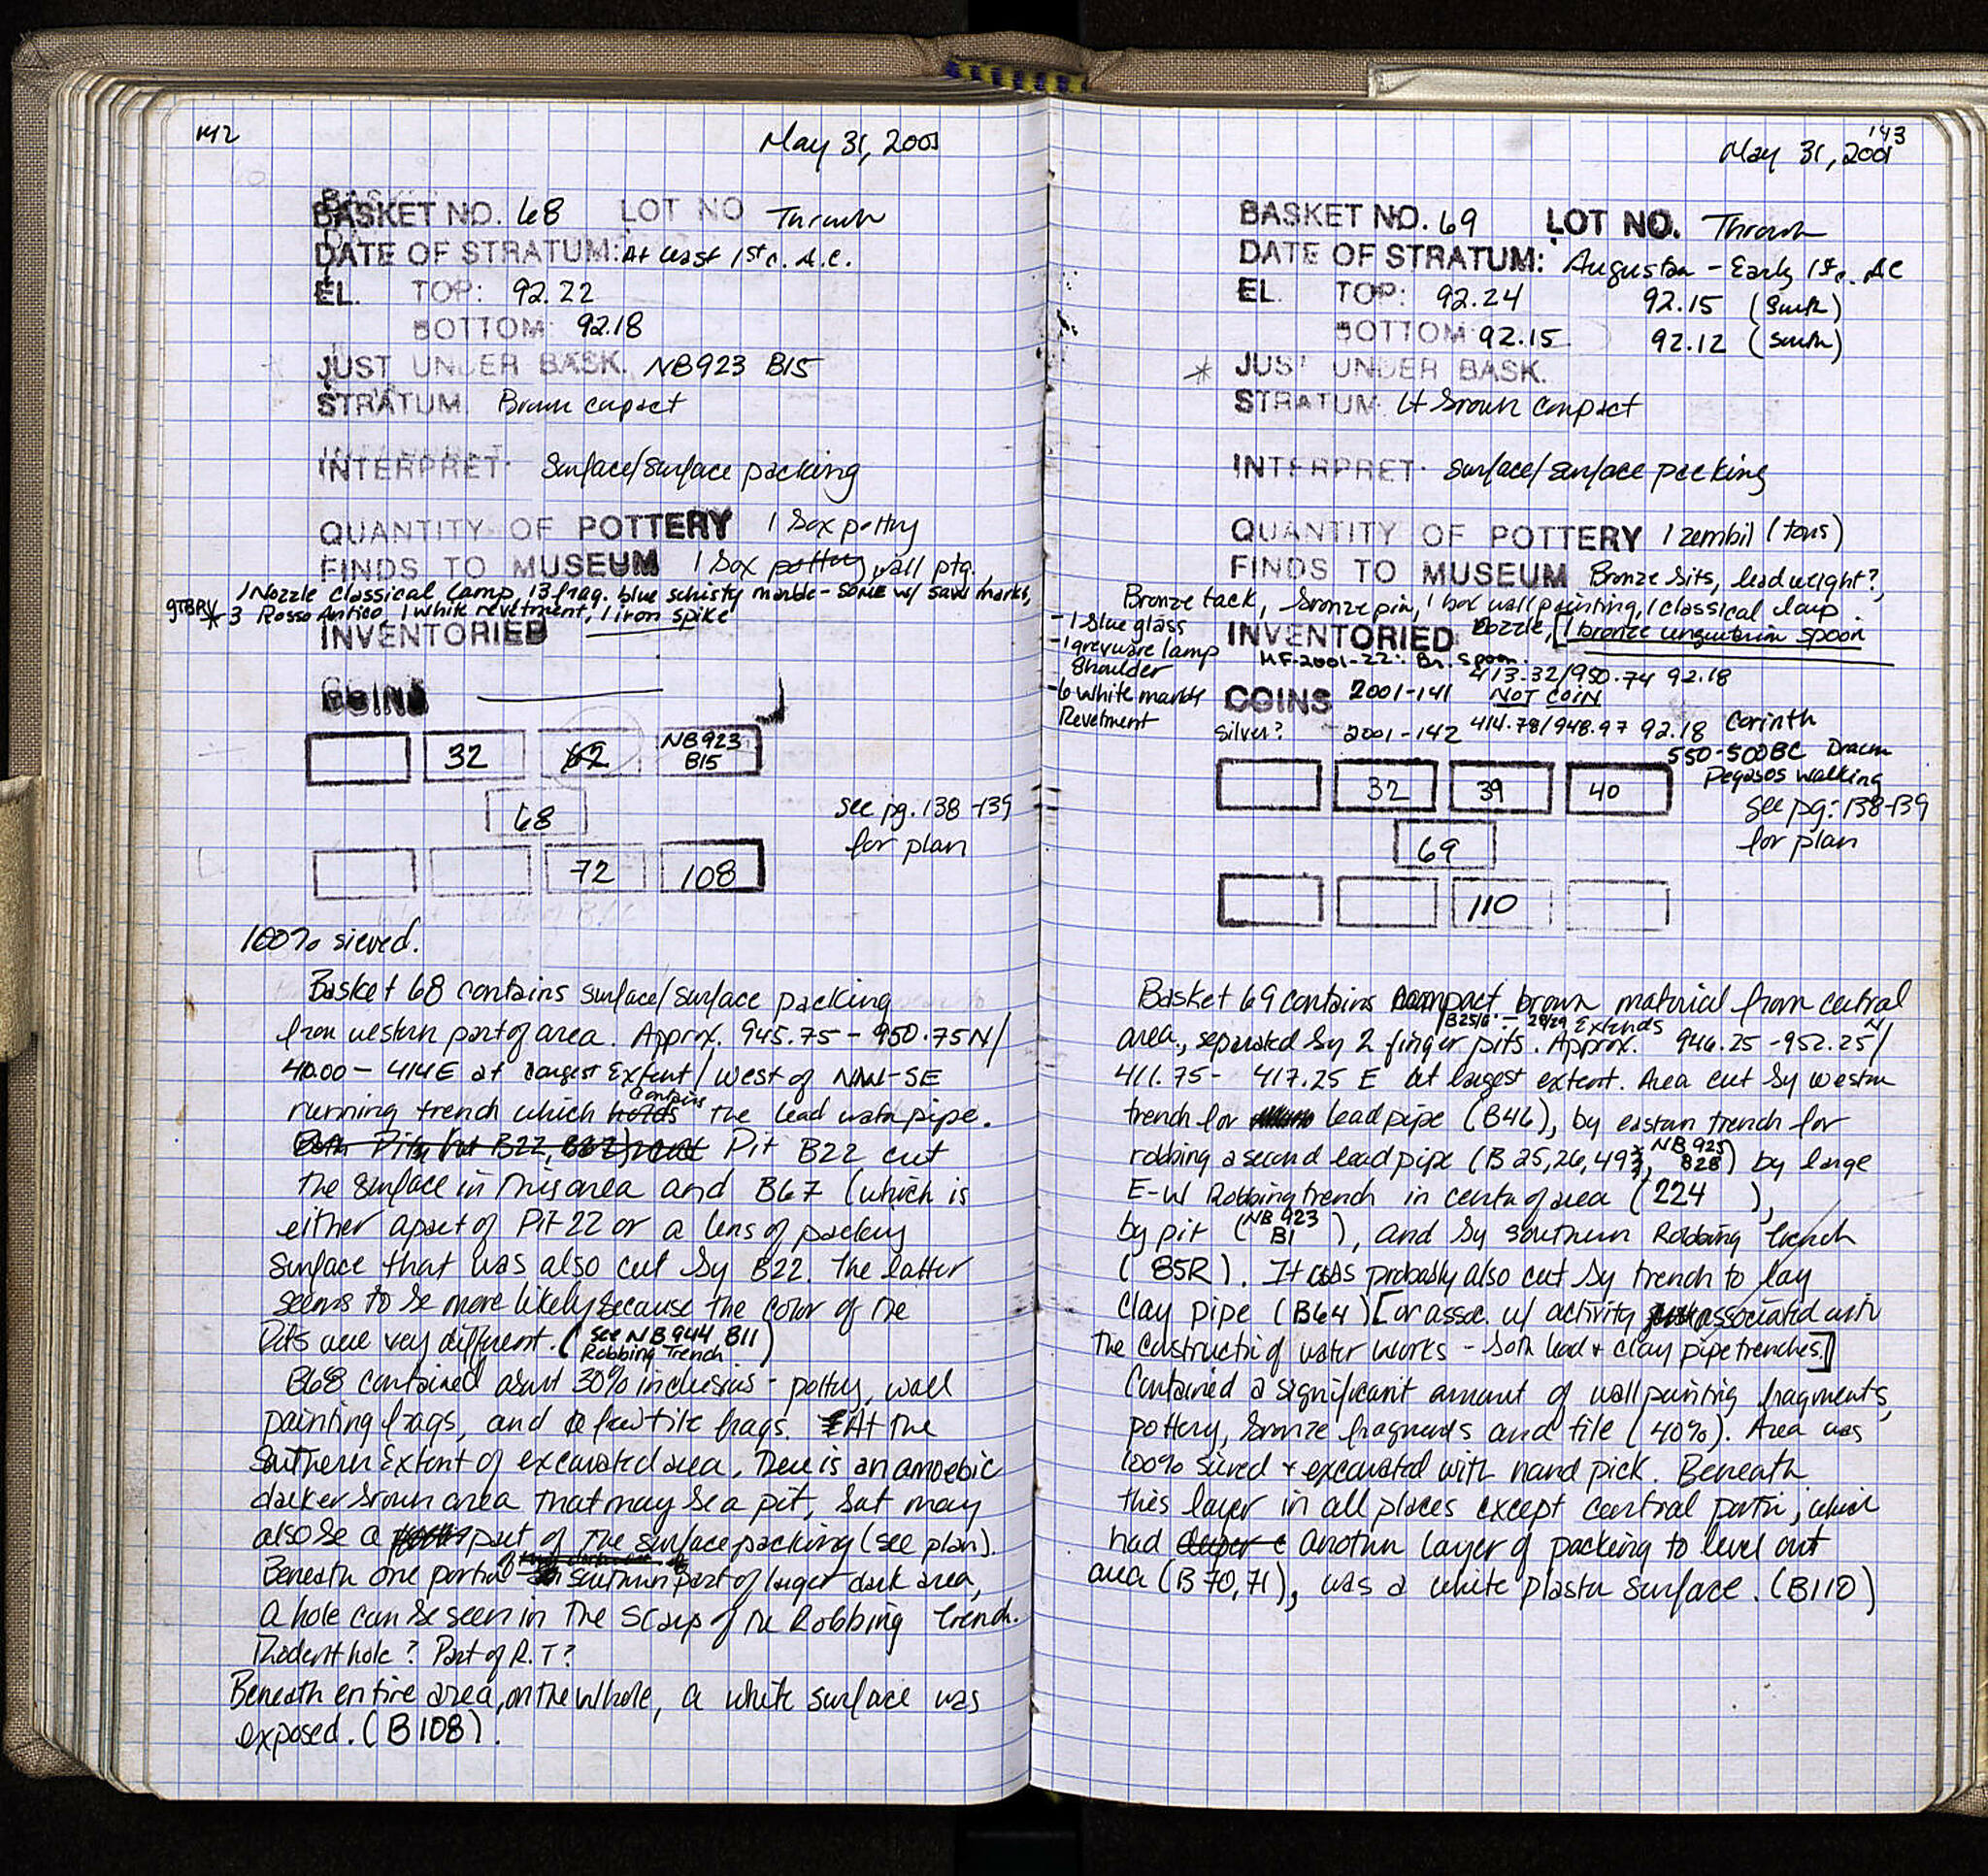 142
May 31, 2001
BASKET NO. 68 LOT NO Thrown
DATE OF STRATUM: At least 1st c. A.C.
EL. TOP: 92.22
BOTTOM: 92.18
JUST UNDER BASK. NB923 B15
STRATUM Brown compact
INTERPRET. Surface/surface packing
QUANTITY OF POTTERY 1 box pottery
FINDS TO MUSEUM 1 box pottery wall ptg.
1 Nozzle Classical Lamp, 13 frag. blue schisty marble - SOME w/ saw marks,
* 3 Rosso Antico, 1 white revetment, 1 iron spike
INVENTORIED
COINS
32 62 NB923 B15
68
72 108
see pg. 138-139
for plan
100% sieved.
Basket 68 contains surface/surface packing
from western part of area. Approx. 945.75 - 950.75 N/
410.00 - 414 E at largest extent/ West of NNW-SE
running trench which holds contains the lead water pipe.
Both Pits B22, Pit B22 cut
the surface in this area and B67 (which is
either a part of Pit 22 or a lens of packing
surface that was also cut by B22. The latter
seems to be more likely because the color of the
Pits are very different. (see NB944 B11 Robbing Trench)
B68 contained about 30% inclusions - pottery, wall
painting frags, and a few tile frags. At the
Southern Extent of excavated area, there is an amoebic
darker brown area that may be a pit, but may
also be a part of the surface packing (see plan).
Beneath one portion of southern part of larger dark area,
a hole can be seen in the scarp of the Robbing trench.
Rodent hole? Part of R.T?
Beneath entire area, on the whole, a white surface was
exposed. (B108).
143
May 31, 2001
BASKET NO. 69 LOT NO. Thrown
DATE OF STRATUM: Augustan - Early 1st c. AC
EL. TOP: 92.24 92.15 (South)
BOTTOM 92.15 92.12 (South)
* JUST UNDER BASK.
STRATUM Lt brown compact
INTERPRET. surface/surface packing
QUANTITY OF POTTERY 1 zembil (tons)
FINDS TO MUSEUM Bronze bits, lead weight?,
Bronze tack, bronze pin, 1 box wall painting, 1 classical lamp
nozzle, [1 bronze unguentarium spoon
- 1 blue glass
- 1 greyware lamp
shoulder
- 6 white marble
Revetment
INVENTORIED
MF-2001-22: Br. Spoon.
413.32/950.74 92.18
COINS 2001-141 NOT COIN
silver? - 2001-142 414.78/948.97 92.18 Corinth
550-500BC Dracm
Pegasos walking
32 39 40
69
110
see pg. 138-139
for plan
Basket 69 contains compact brown material from central
area, separated by 2 finger pits. B25/6 - 28/29 Extends Approx. 946.25 - 952.25 N/
411.75 - 417.25 E at largest extent. Area cut by western
trench for lead pipe (B46), by eastern trench for
robbing a second lead pipe (B 25, 26, 49, NB 923 B28) by large
E-W Robbing trench in center of area (224 ),
by pit (NB 923 B1), and by southern Robbing trench
( 85R). It was probably also cut by trench to lay
clay pipe (B64) [or assoc. w/ activity associated with
the construction of water works - both lead + clay pipe trenches]
Contained a significant amount of wall painting fragments,
pottery, bronze fragments and tile (40%). Area was
100% sieved + excavated with hand pick. Beneath
this layer in all places except central portion, which
had deeper another layer of packing to level out
area (B70,71), was a white plaster surface. (B110)